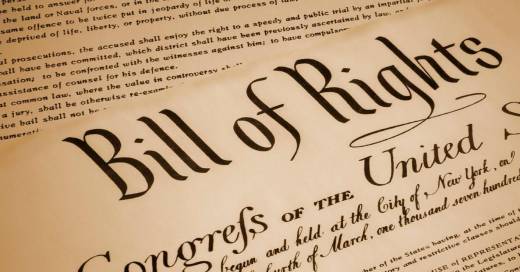 be held to answer
the land or Naval forces, or in the
same offence to be twice put in jeopardy of life
deprived of life, liberty, or property, without due process of
prosecutions, the accused shall enjoy the right to a speedy and public trial by an impartial
shall have been committed, which district shall have been previously ascertained by law, and
to be confronted with the witnesses against him; to have
assistance of counsel for his defence.
common law, where the value in controversy shall
a jury, shall be otherwise
bail shall not be
Bill of Rights
Congreſs OF THE United S
begun and held at the City of New York, on
of March, one thousand seven hundred
of the States having, at the time of
and restrictive clauses should